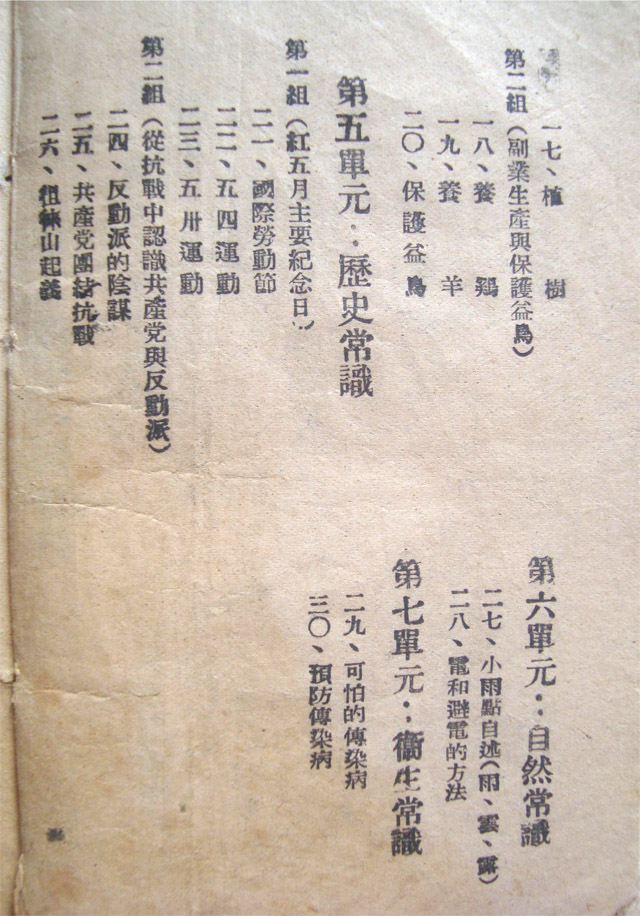 一七、植樹
第二組(副業生產與保護益鳥)
一八、養鷄
一九、養羊
二〇、保護益鳥
第五單元：歷史常識
第一組(紅五月主要紀念日)
二一、國際勞動節
二二、五四運動
二三、五卅運動
第二組(從抗戰中認識共產党與反動派)
二四、反動派的陰謀
二五、共產党團結抗戰
二六、徂徠山起義
第六單元：自然常識
二七、小雨點自述(雨、雲、露)
二八、電和避電的方法
第七單元：衛生常識
二九、可怕的傳染病
三〇、預防傳染病